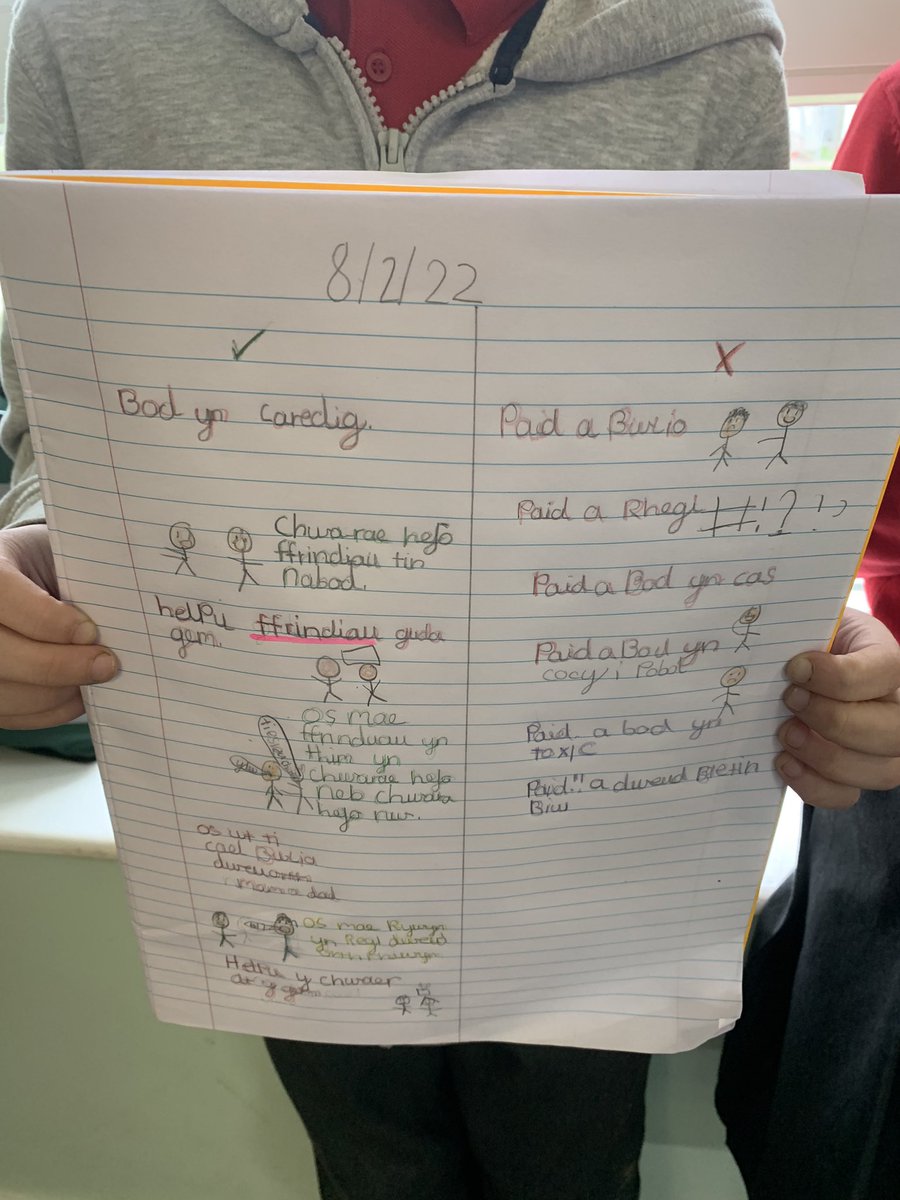 8/2/22
✓
Bod yn caredig.
Chwarae hefo
ffrindiau tin
Nabod.
helpu ffrindiau guda
gem.
Os mae
ffrinduau yn
thim yn
chwarae hefo
neb chwara
hefo nw.
os wt ti
cael Biwlio
mam a dad
OS mae Rywyn
yn Regi dweud
Helpu y chwaer
ar y gem
X
Paid a Bwlio
Paid a Rhegi ##!?!?
Paid a Bod yn cas
Paid a Bod yn
cocy i Pobol
Paid. a bod yn
toxic
Paid!! a dweud Blethn
Biw